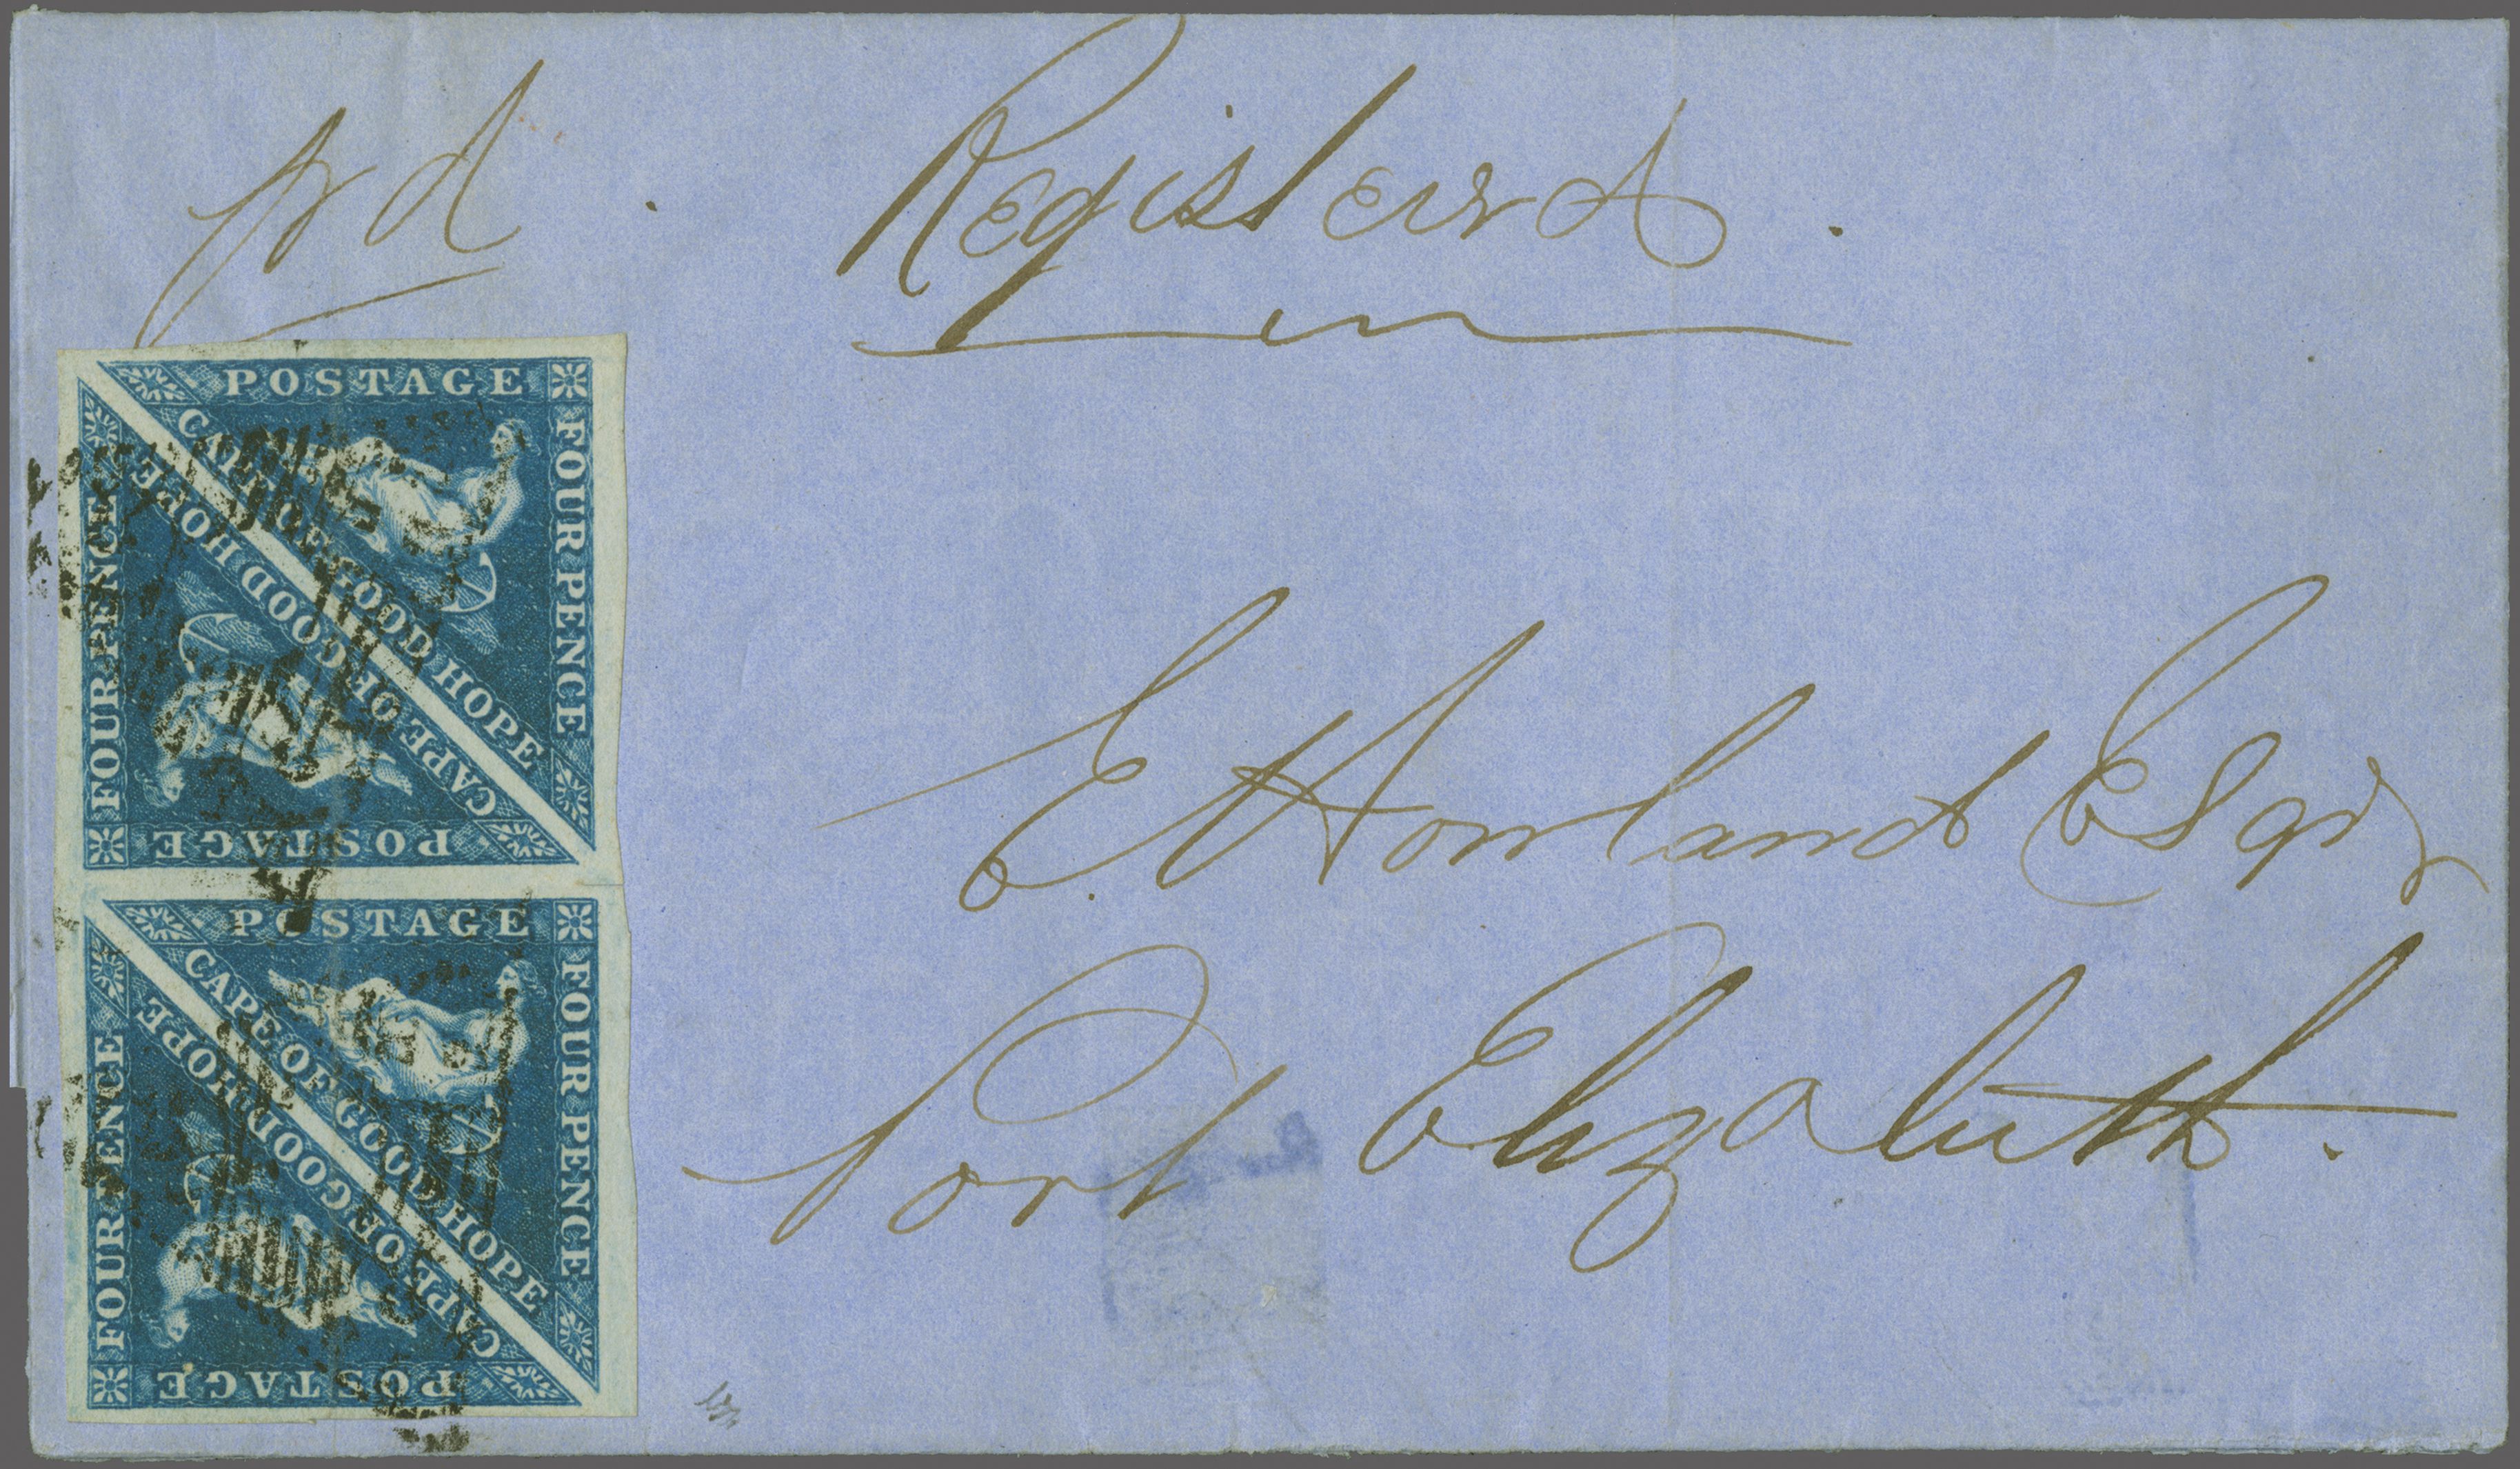 pd
Registerd.
POSTAGE
FOUR PENCE
CAPE OF GOOD HOPE
CAPE OF GOOD HOPE
FOUR PENCE
POSTAGE
POSTAGE
FOUR PENCE
CAPE OF GOOD HOPE
CAPE OF GOOD HOPE
FOUR PENCE
POSTAGE
E. Howland Esqr
Port Elizabeth.